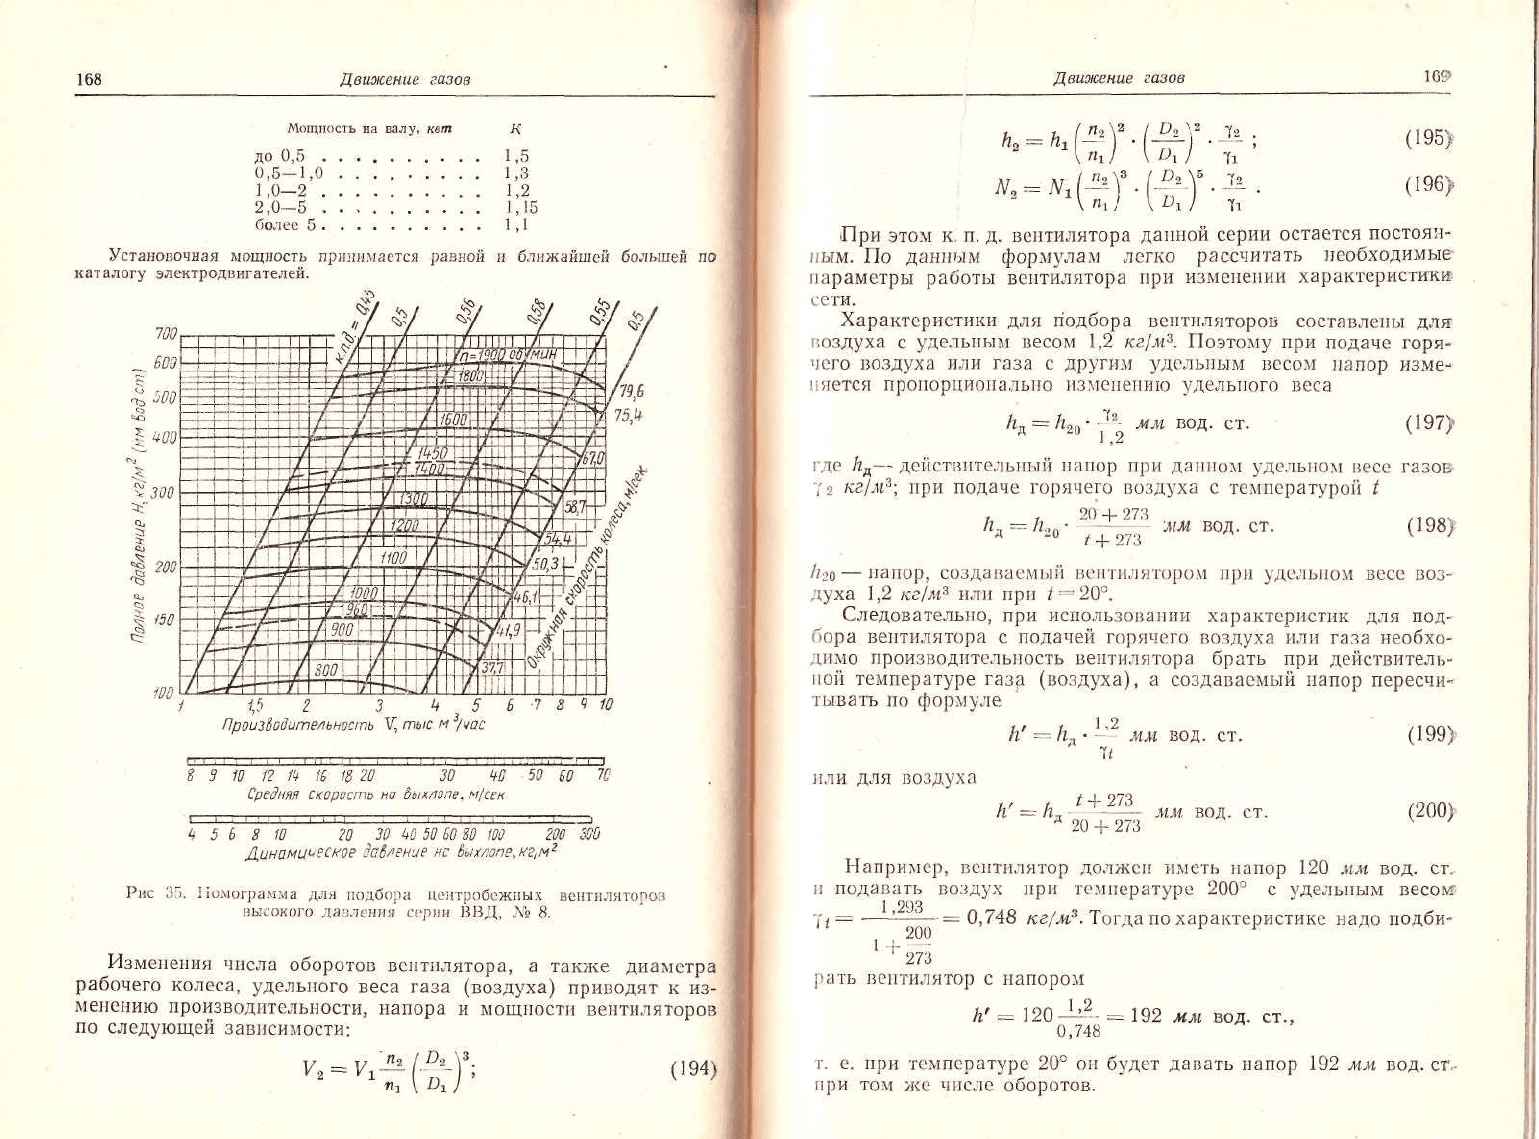 168 Движение газов
Мощность на валу, квт К
до 0,5 . . . . . . . . . . 1,5
0,5—1,0 . . . . . . . . . 1,3
1,0—2 . . . . . . . . . . 1,2
2,0—5 . . . . . . . . . . 1,15
более 5. . . . . . . . . . 1,1
Установочная мощность принимается равной и ближайшей большей по
каталогу электродвигателей.
к.п.д. = 0,45 0,5 0,56 0,58 0,55 0,5
700
600
500
400
300
200
150
100
Полное давление H, кг/м² (мм вод ст)
n=1900 об/мин
1800
1600
1450
1400
1300
1200
1100
1000
960
900
800
79,6
75,4
67,0
58,7
54,4
50,3
46,1
41,9
37,7
Окружная скорость колеса, м/сек
1 1,5 2 3 4 5 6 7 8 9 10
Производительность V, тыс м³/час
8 9 10 12 14 16 18 20 30 40 50 60 70
Средняя скорость на выхлопе, м/сек
4 5 6 8 10 20 30 40 50 60 80 100 200 300
Динамическое давление на выхлопе, кг/м²
Рис 35. Номограмма для подбора центробежных вентиляторов
высокого давления серии ВВД, № 8.
Изменения числа оборотов вентилятора, а также диаметра
рабочего колеса, удельного веса газа (воздуха) приводят к из-
менению производительности, напора и мощности вентиляторов
по следующей зависимости:
V₂ = V₁ n₂/n₁ (D₂/D₁)³; (194)
Движение газов 169
h₂ = h₁ (n₂/n₁)² · (D₂/D₁)² · γ₂/γ₁ ; (195)
N₂ = N₁ (n₂/n₁)³ · (D₂/D₁)⁵ · γ₂/γ₁ . (196)
При этом к. п. д. вентилятора данной серии остается постоян-
ным. По данным формулам легко рассчитать необходимые
параметры работы вентилятора при изменении характеристики
сети.
Характеристики для подбора вентиляторов составлены для
воздуха с удельным весом 1,2 кг/м³. Поэтому при подаче горя-
чего воздуха или газа с другим удельным весом напор изме-
няется пропорционально изменению удельного веса
hд = h₂₀ · γ₂/1,2 мм вод. ст. (197)
где hд— действительный напор при данном удельном весе газов
γ₂ кг/м³; при подаче горячего воздуха с температурой t
hд = h₂₀ · (20 + 273)/(t + 273) мм вод. ст. (198)
h₂₀ — напор, создаваемый вентилятором при удельном весе воз-
духа 1,2 кг/м³ или при t = 20°.
Следовательно, при использовании характеристик для под-
бора вентилятора с подачей горячего воздуха или газа необхо-
димо производительность вентилятора брать при действитель-
ной температуре газа (воздуха), а создаваемый напор пересчи-
тывать по формуле
h′ = hд · 1,2/γt мм вод. ст. (199)
или для воздуха
h′ = hд (t + 273)/(20 + 273) мм вод. ст. (200)
Например, вентилятор должен иметь напор 120 мм вод. ст.
и подавать воздух при температуре 200° с удельным весом
γt = 1,293/(1 + 200/273) = 0,748 кг/м³. Тогда по характеристике надо подби-
рать вентилятор с напором
h′ = 120 1,2/0,748 = 192 мм вод. ст.,
т. е. при температуре 20° он будет давать напор 192 мм вод. ст.
при том же числе оборотов.